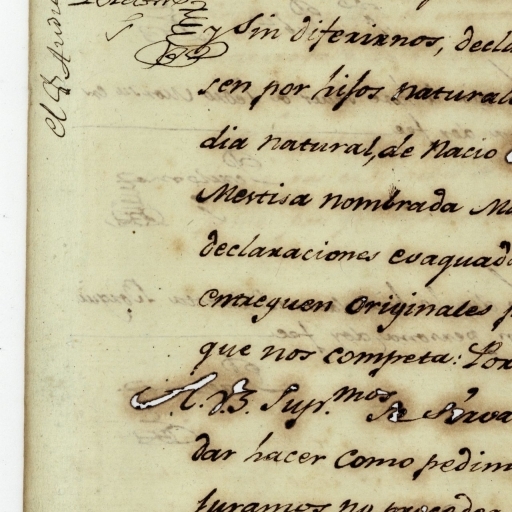 y sin diferirnos, decla
sen por hijos natural
dia natural, de Nacio
Mestisa nombrada Ma
declaraciones evaquada
entreguen originales p
que nos competa: Por
A. V.S. Sup.mos Se Sirva
dar hacer como pedim
juramos no proceder